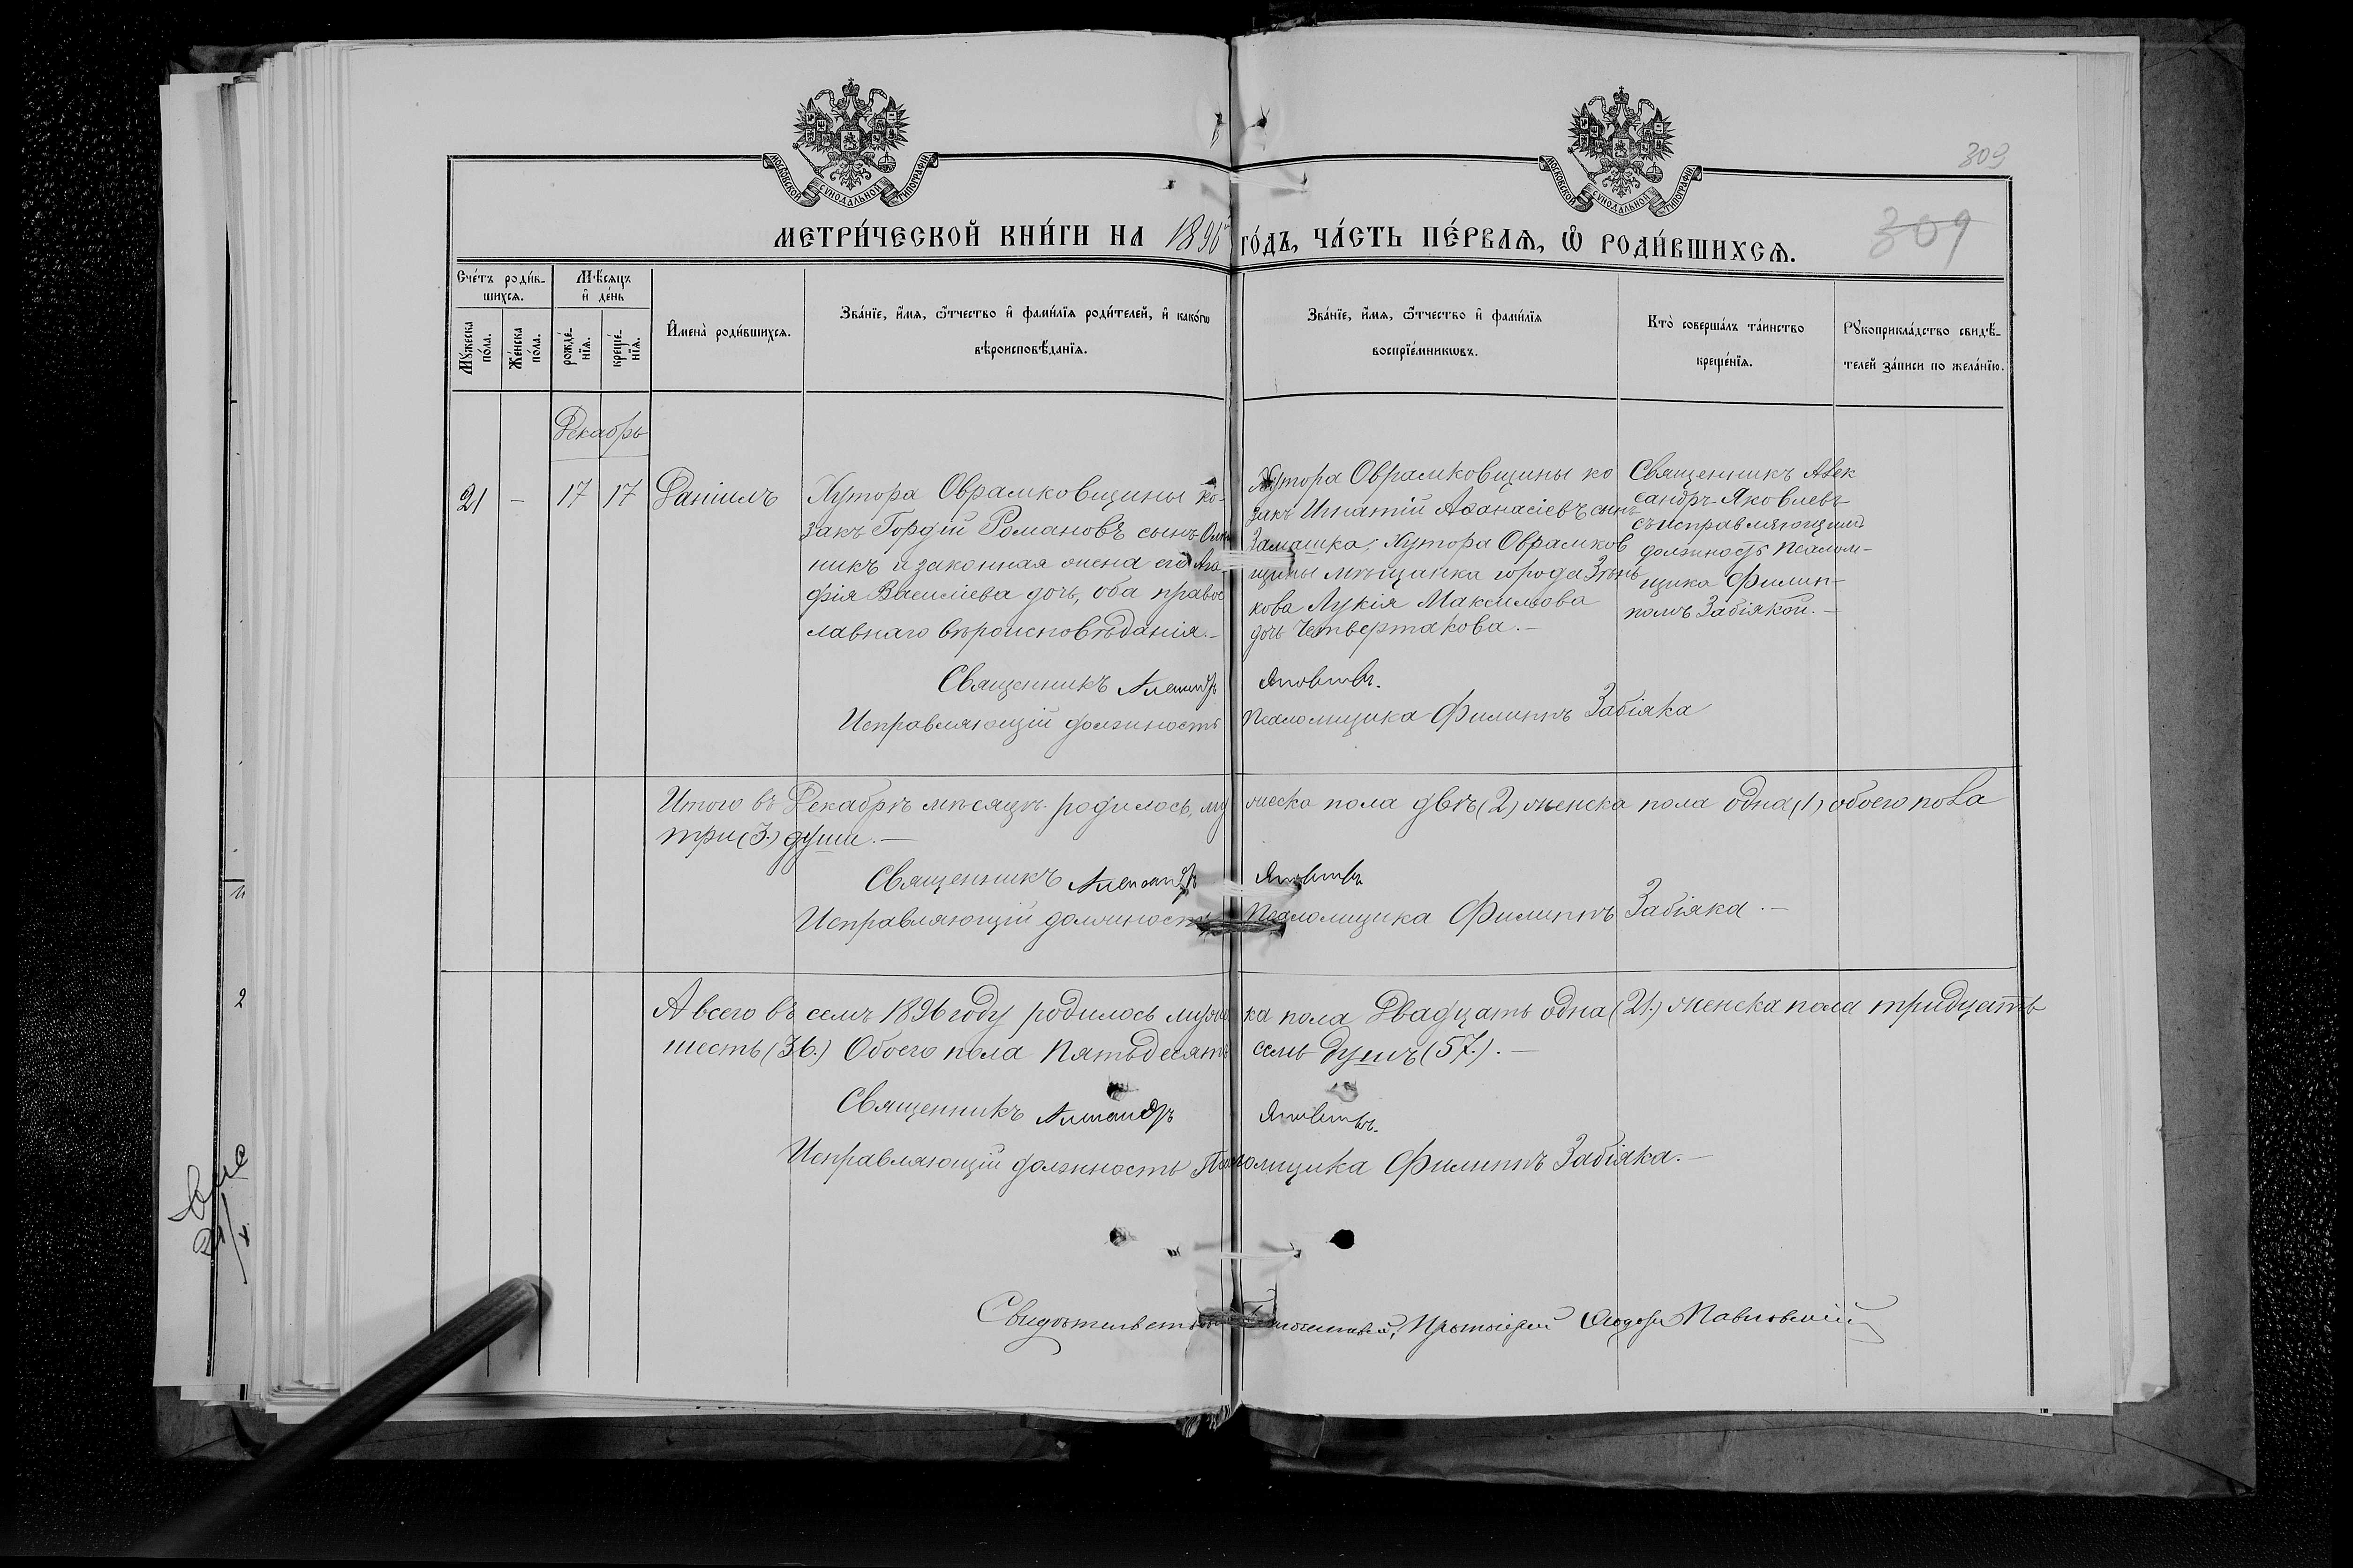 МОСКОВСКОЙ СУНОДАЛЬНОЙ ТИПОГРАФІИ
МОСКОВСКОЙ СУНОДАЛЬНОЙ ТИПОГРАФІИ
309
309
МЕТРИ́ЧЕСКОЙ КНИ́ГИ НА 1896 ГО́ДЪ, ЧА́СТЬ ПЕ́РВАѦ, Ѽ РОДИ́ВШИХСѦ.
Сче́тъ роди́в-
шихсѧ.
Мѣ́сѧцъ
и҆ де́нь
Мꙋ́жеска
по́ла.
Же́нска
по́ла.
рожде́-
нїѧ.
креще́-
нїѧ.
И҆мена̀ роди́вшихсѧ.
Зва́нїе, и҆́мѧ, ѻ҆́тчество и҆ фами́лїѧ роди́телей, и҆ како́гѡ
вѣроисповѣ́данїѧ.
Зва́нїе, и҆́мѧ, ѻ҆́тчество и҆ фами́лїѧ
воспрїе́мникѡвъ.
Кто̀ соверша́лъ та́инство
креще́нїѧ.
Рꙋкоприкла́дство свидѣ́-
телей за́писи по жела́нїю.
Декабрь
21 — 17 17 Даніилъ
Хутора Оврамковщины ко-
закъ Гордій Романовъ сынъ
никъ и законная жена его Ага-
фія Василіева дочь, оба правос
лавнаго вѣроисповѣданія.—
Хутора Оврамковщины ко
закъ Игнатій Аѳанасіевъ сынъ
Замашка; Хутора Оврамков
щины мѣщанка города Зѣнь
кова Лукія Максимова
дочь Четвертакова.—
Священникъ Алек
сандръ Яковлевъ
съ исправляющимъ
должность псалом-
щика Филип-
помъ Забіякой.—
Священникъ Александръ Яковлевъ.
Исправляющій должность Псаломщика Филиппъ Забіяка
Итого въ Декабрѣ мѣсяцѣ родилось, мужеска пола двѣ (2) женска пола одна (1) обоего пола
три (3.) души.—
Священникъ Александръ Яковлевъ
Исправляющій должность Псаломщика Филиппъ Забіяка.—
А всего въ семъ 1896 году родилось мужеска пола Двадцать одна (21.) женска пола тридцать
шесть (36.) Обоего пола Пятьдесятъ семь душъ (57.).—
Священникъ Александръ Яковлевъ.
Исправляющій должность Псаломщика Филиппъ Забіяка.—
Протоіерей Ѳеодоръ Павловскій